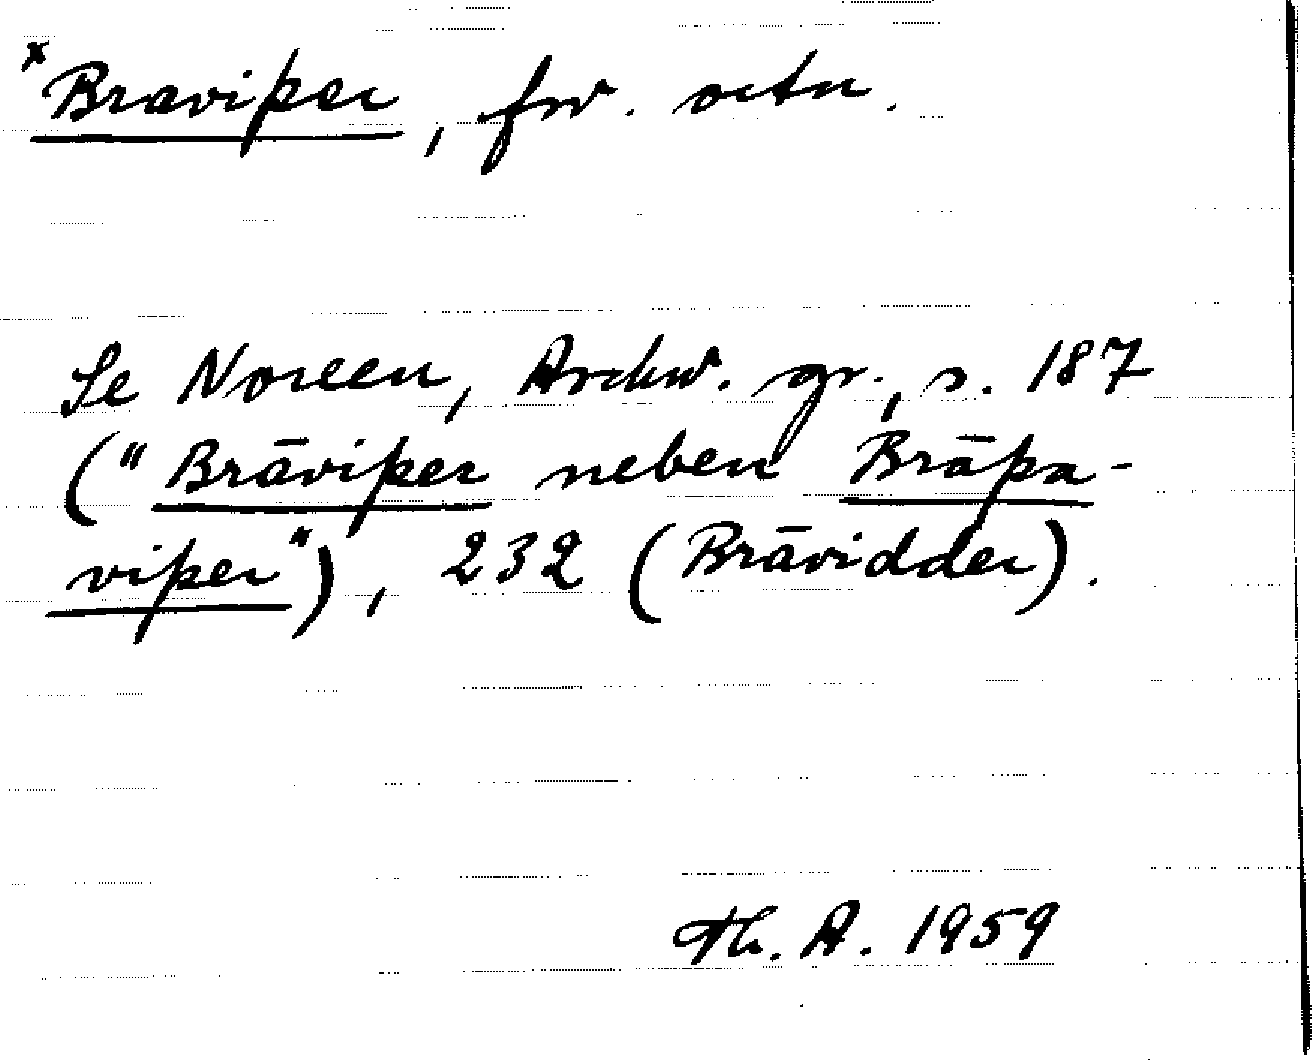 *Braviþer, fsv. ortn.
Se Noreen, Aschw. gr., s. 187
("Brāviþer neben Brāþa-
viþer"), 232 (Brāvidder).
Th. A. 1959